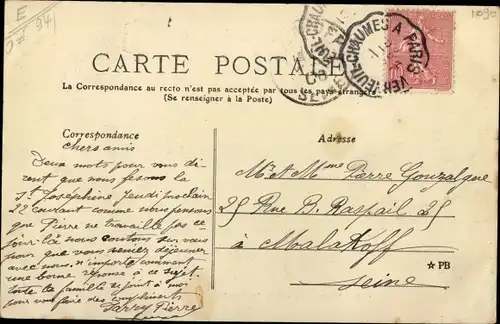 E
94
1090
VERNEUIL-CHAUMES A PARIS
CARTE POSTALE
La Correspondance au recto n'est pas acceptée par tous les pays étrangers
(Se renseigner à la Poste)
Correspondance
Adresse
chers amis
Deux mots pour vous di-
rent que nous fesons la
St Joséphine Jeudi prochain
22 courant comme nous pensons
que Pierre ne travaille pas ce
jour-là nous comtons sur vous
pour que vous veniez déjeuner
avec nous, n'importe comment
une bonne réponse à ce sujet
toute la famille se joint à moi
pour vous faire des compliments
Larry Pierre
Mr et Mme Pierre Gouzalgue
25 Rue B. Raspail 25
à Malakoff
Seine
★ PB